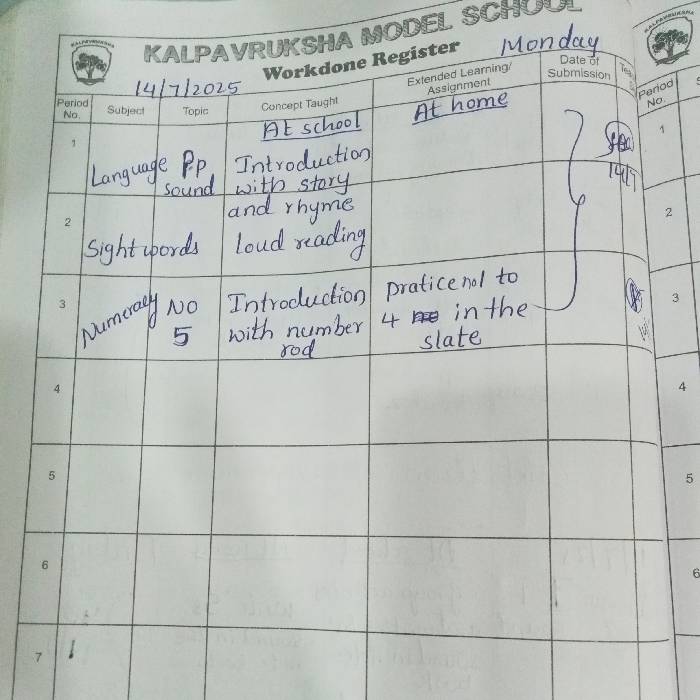 KALPAVRUKSHA MODEL SCHOOL
Workdone Register
Monday
14/7/2025
Period No. Subject Topic Concept Taught Extended Learning/ Assignment Date of Submission
At school At home
1 Language P.p sound Introduction with story and rhyme
14/7
2 Sight words loud reading
3 Numeracy NO 5 Introduction with number rod praticeno1 to 4 in the slate
4
5
6
7
KALPAVRUKSHA
Period No.
1
2
3
4
5
6